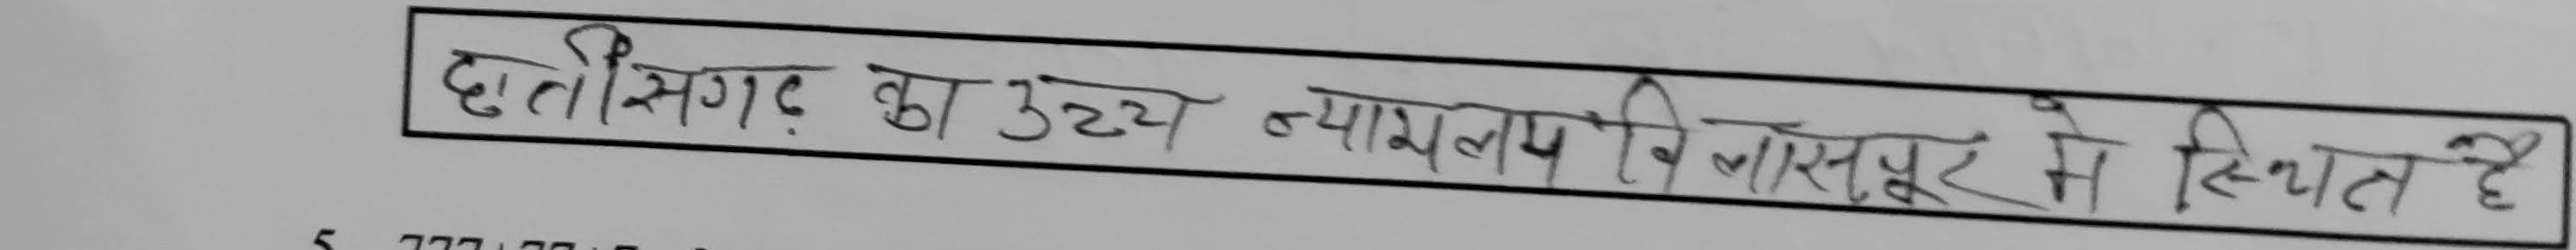 छातीसगढ़ का उच्य न्यायलय विलासपूर मे स्थित है